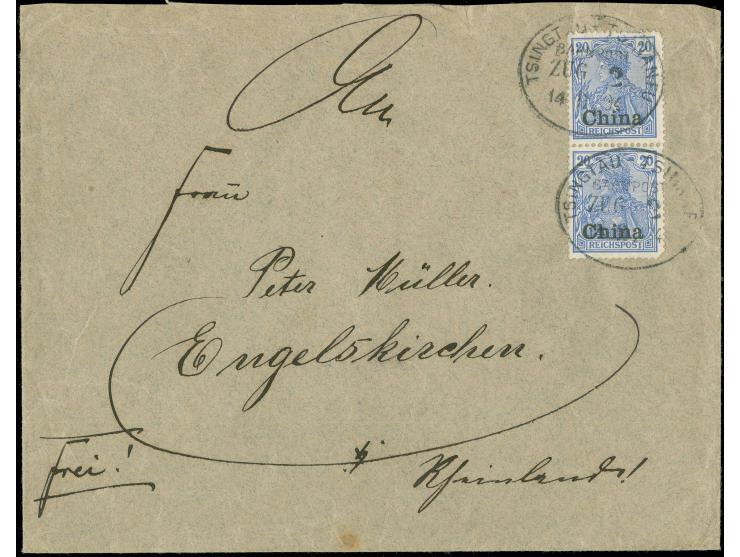 An
Frau
Peter Müller.
Engelskirchen.
Frei!
Rheinland!
20 20
China
REICHSPOST
20 20
China
REICHSPOST
TSINGTAU - TSINANFU
BAHNPOST
ZUG 2
14
TSINGTAU - TSINANF
BAHNPOST
ZUG 2